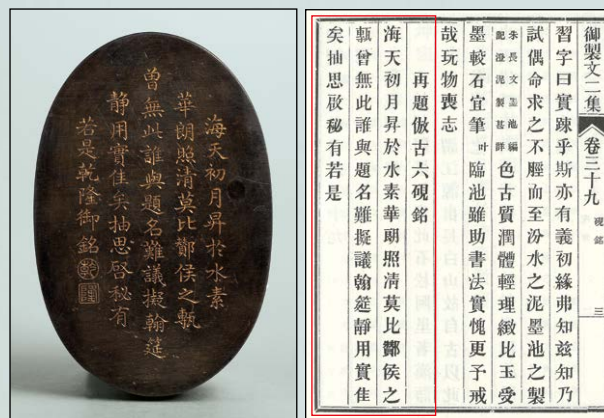 海天初月昇於水素
華朗照清莫比酇侯之甎
曾無此誰與題名難議擬翰筵
靜用實佳矣抽思啓秘有
若是乾隆御銘
乾
隆
御製文二集 卷三十九 硯銘 三
習字曰實踈乎斯亦有義初緣弗知茲知乃
試偶命求之不脛而至汾水之泥墨池之製
朱長文墨池編記澄泥製甚詳色古質潤體輕理緻比玉受
墨較石宜筆叶臨池雖助書法實愧更予戒
哉玩物喪志
再題倣古六硯銘
海天初月昇於水素華朗照清莫比酇侯之
甎曾無此誰與題名難擬議翰筵靜用實佳
矣抽思啟秘有若是